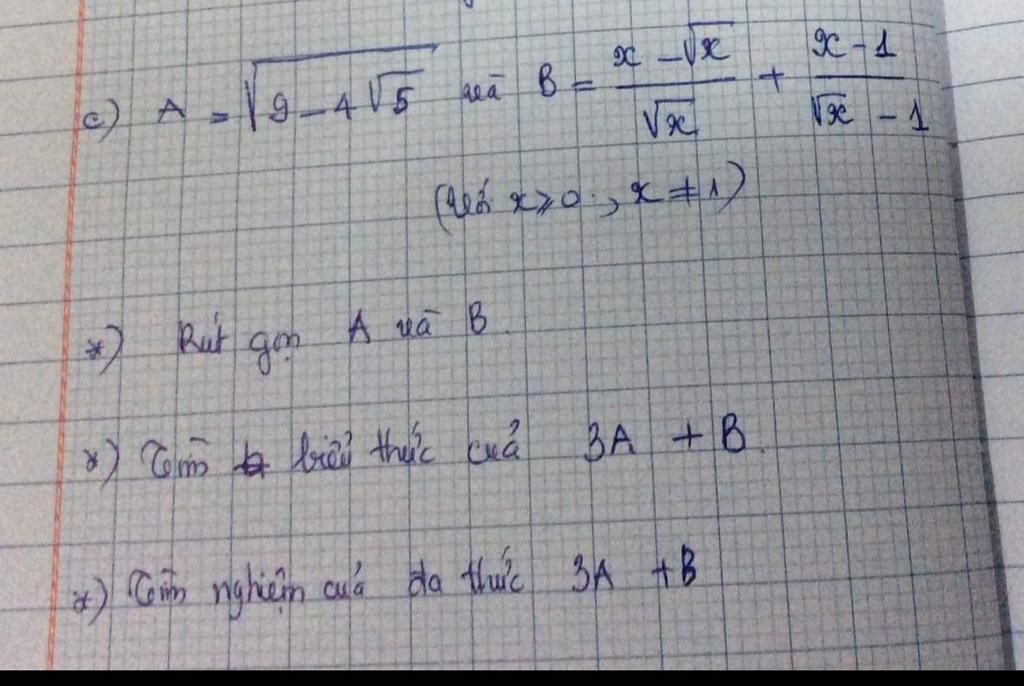 c) A = √(9 - 4√5) và B = (x - √x)/√x + (x - 1)/(√x - 1)
(với x ≥ 0 ; x ≠ 1)
*) Rút gọn A và B.
*) Tìm biểu thức của 3A + B.
*) Tìm nghiệm của đa thức 3A + B